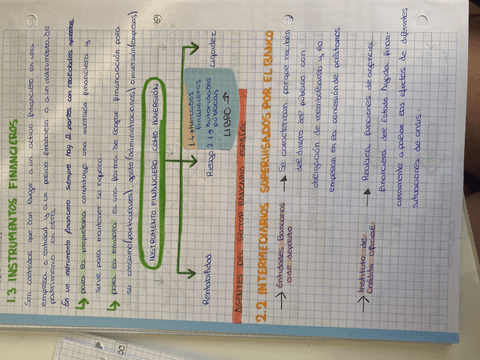 1.3 INSTRUMENTOS FINANCIEROS
Son contratos que dan lugar a un activo financiero en una
empresa o entidad y a un pasivo financiero o a un instrumento de
patrimonio en otra.
En un instrumento financiero siempre hay 2 partes con realidades opuestas
para el propietario constituye una inversión financiera y
sirve para mantener su riqueza.
para el emisor es una forma de captar financiación para
su consumo (particulares), gasto (administraciones) o inversión (empresas)
INSTRUMENTO FINANCIERO COMO INVERSIÓN
Rentabilidad
Riesgo
Liquidez
1.4 Mercados
financieros
públicos
LIBRO →
AGENTES DEL SECTOR BANCARIO ESPAÑOL
2.2 INTERMEDIARIOS SUPERVISADOS POR EL BANCO
→ Entidades Bancarias
o de depósito
→ Se caracterizan porque reciben
del público con
obligación de reembolsarlo y lo
emplean en la concesión de préstamos.
→ Instituto de
Crédito Oficial
→ Realiza funciones de agencia
financiera del Estado
a paliar los efectos de diferentes
situaciones de crisis.